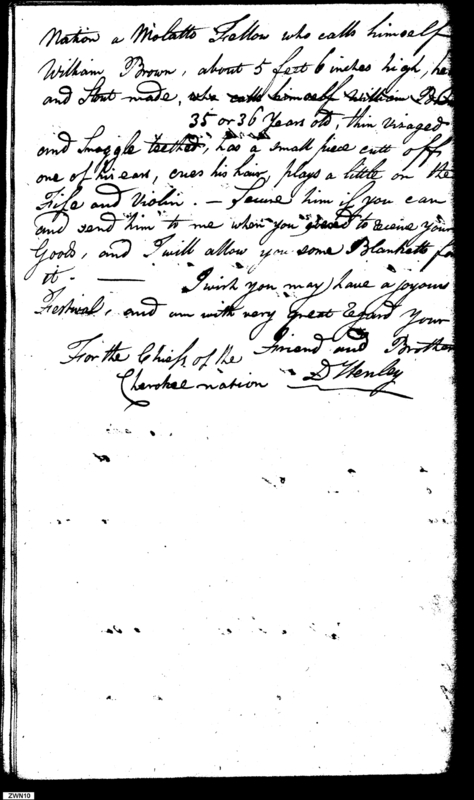 Nation a Molatto Fellow who calls himself
William Brown, about 5 feet 6 inches high,
and Stout made, who calls himself William
35 or 36 Years old, thin visaged
and Snaggle teethed, has a small piece cutt off
one of his ears, cues his hair, plays a little on the
Fife and Violin. — Secure him if you can
and send him to me when you to receive your
Goods, and I will allow you some Blanketts for
it. — I wish you may have a joyous
Festival, and am with very great regard your
Friend and Brother
For the Chiefs of the
Cherokee nation D Henley
ZWN10